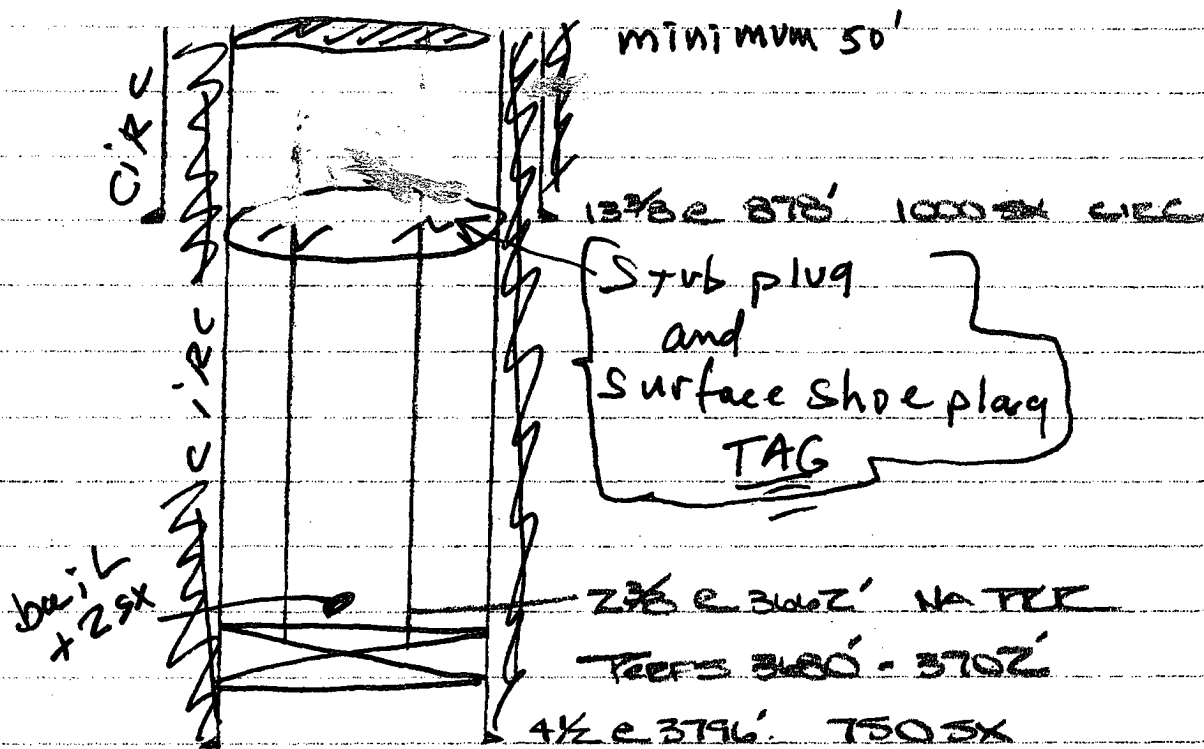 minimum 50'
CiRC
13 3/8 @ 878' 1000 SX CIRC
Stub plug
and
Surface Shoe plug
TAG
CiRC
bail
+ 2 SX
2 3/8 @ 3662'
Perfs 3680' - 3702'
4 1/2 @ 3796'. 750 SX